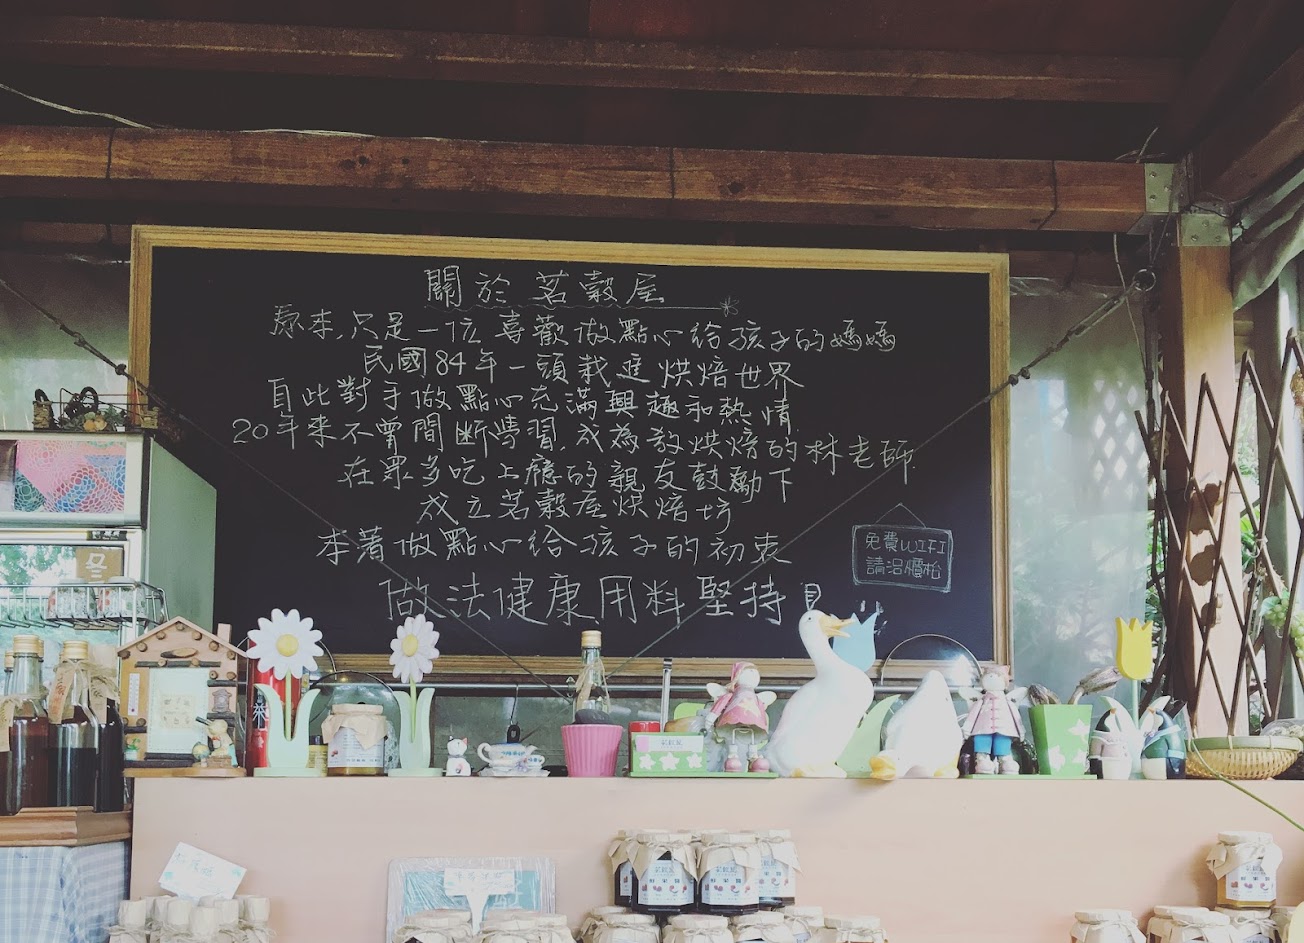 關於茗穀屋
原來,只是一位喜歡做點心給孩子的媽媽
民國84年一頭栽進烘焙世界
自此對手做點心充滿興趣和熱情
20年來不曾間斷學習,成為教烘焙的林老師
在眾多吃上癮的親友鼓勵下
成立茗穀屋烘焙坊
本著做點心給孩子的初衷
做法健康用料堅持!
免費WIFI
請洽櫃枱
冬